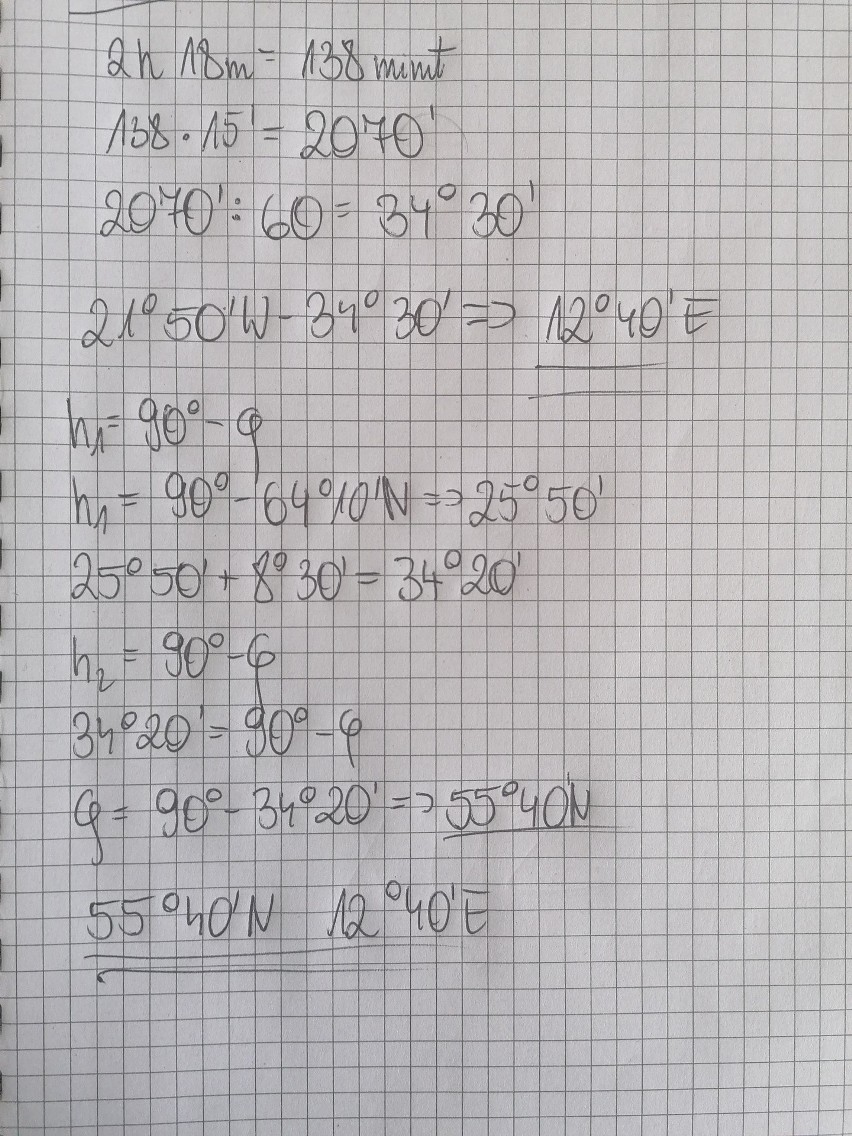 2h 18m = 138 minut
138 · 15' = 2070'
2070' : 60 = 34° 30'
21° 50' W - 34° 30' => 12° 40' E
h₁ = 90° - φ
h₁ = 90° - 64° 10' N => 25° 50'
25° 50' + 8° 30' = 34° 20'
h₂ = 90° - φ
34° 20' = 90° - φ
φ = 90° - 34° 20' => 55° 40' N
55° 40' N 12° 40' E